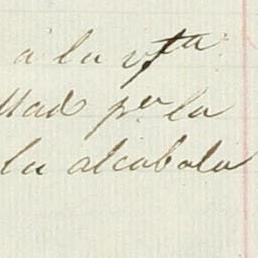 á la vta
ltad pr la
la alcabala